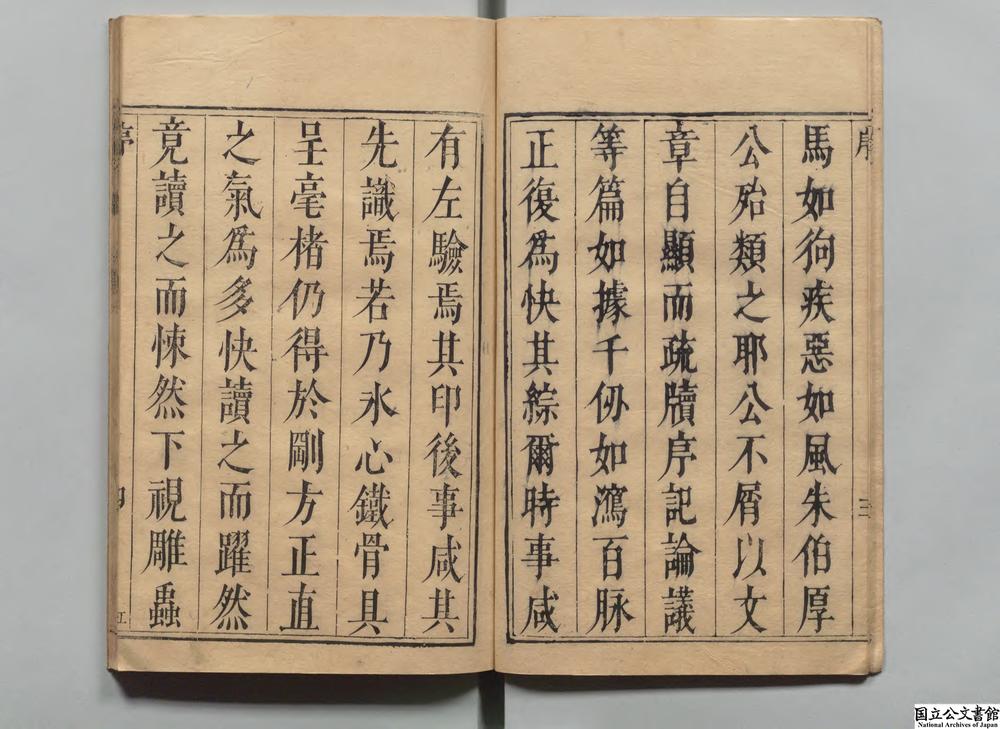 序
三
馬如狗疾惡如風朱伯厚
公殆類之耶公不屑以文
章自顯而疏牘序記論議
等篇如據千仞如瀉百脉
正復為快其綜爾時事咸
有左驗焉其印後事咸其
先識焉若乃氷心鐵骨具
呈毫楮仍得於剛方正直
之氣為多快讀之而躍然
竟讀之而悚然下視雕蟲
国立公文書館
National Archives of Japan